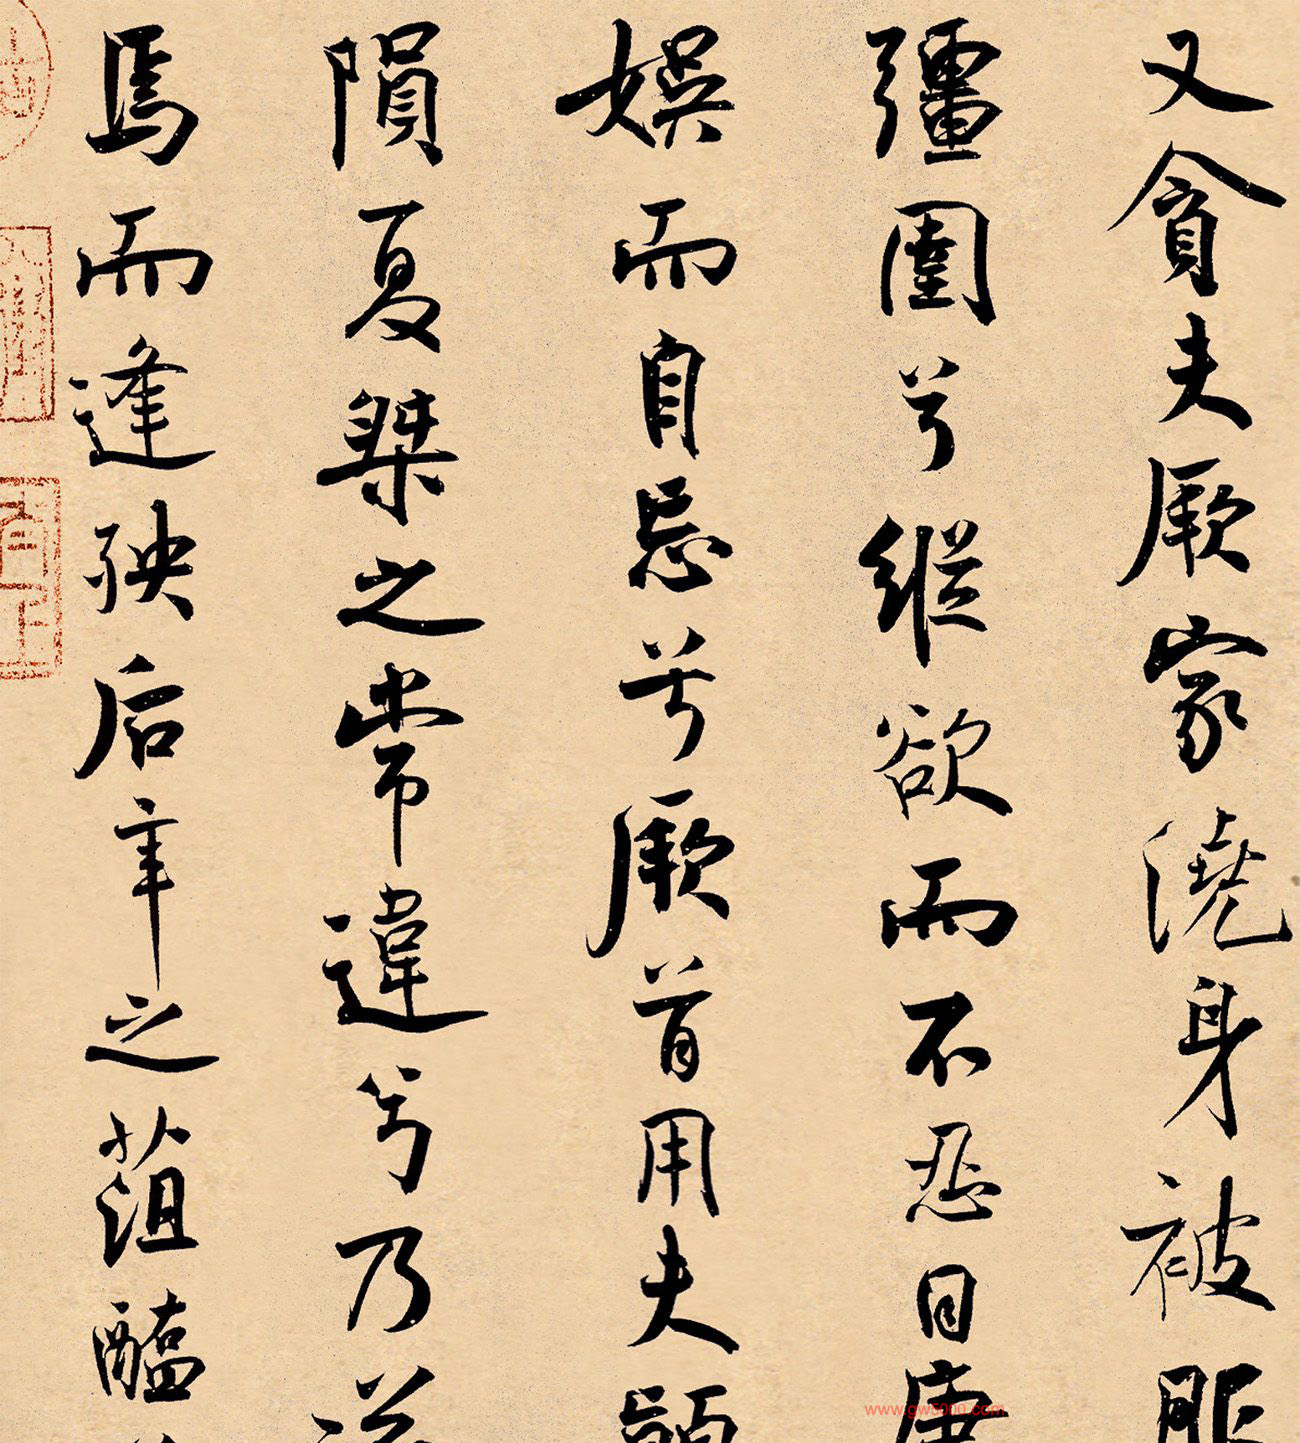 又貪夫厥家澆身被服
彊圉兮縱欲而不忍日康
娛而自忌兮厥首用夫顛
隕夏桀之常違兮乃遂
焉而逢殃后辛之葅醢
www.gw5000.com